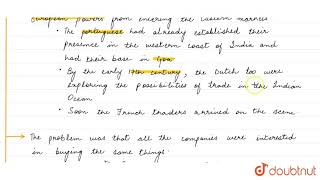 European powers from entering the Eastern markets
• The portuguese had already established their
presence in the western coast of India and
had their base in Goa
• By the early 17th century, the Dutch too were
exploring the possibilities of trade in the Indian
Ocean
• Soon the French traders arrived on the scene
→ The problem was that all the companies were interested
in buying the same things.
doubtnut